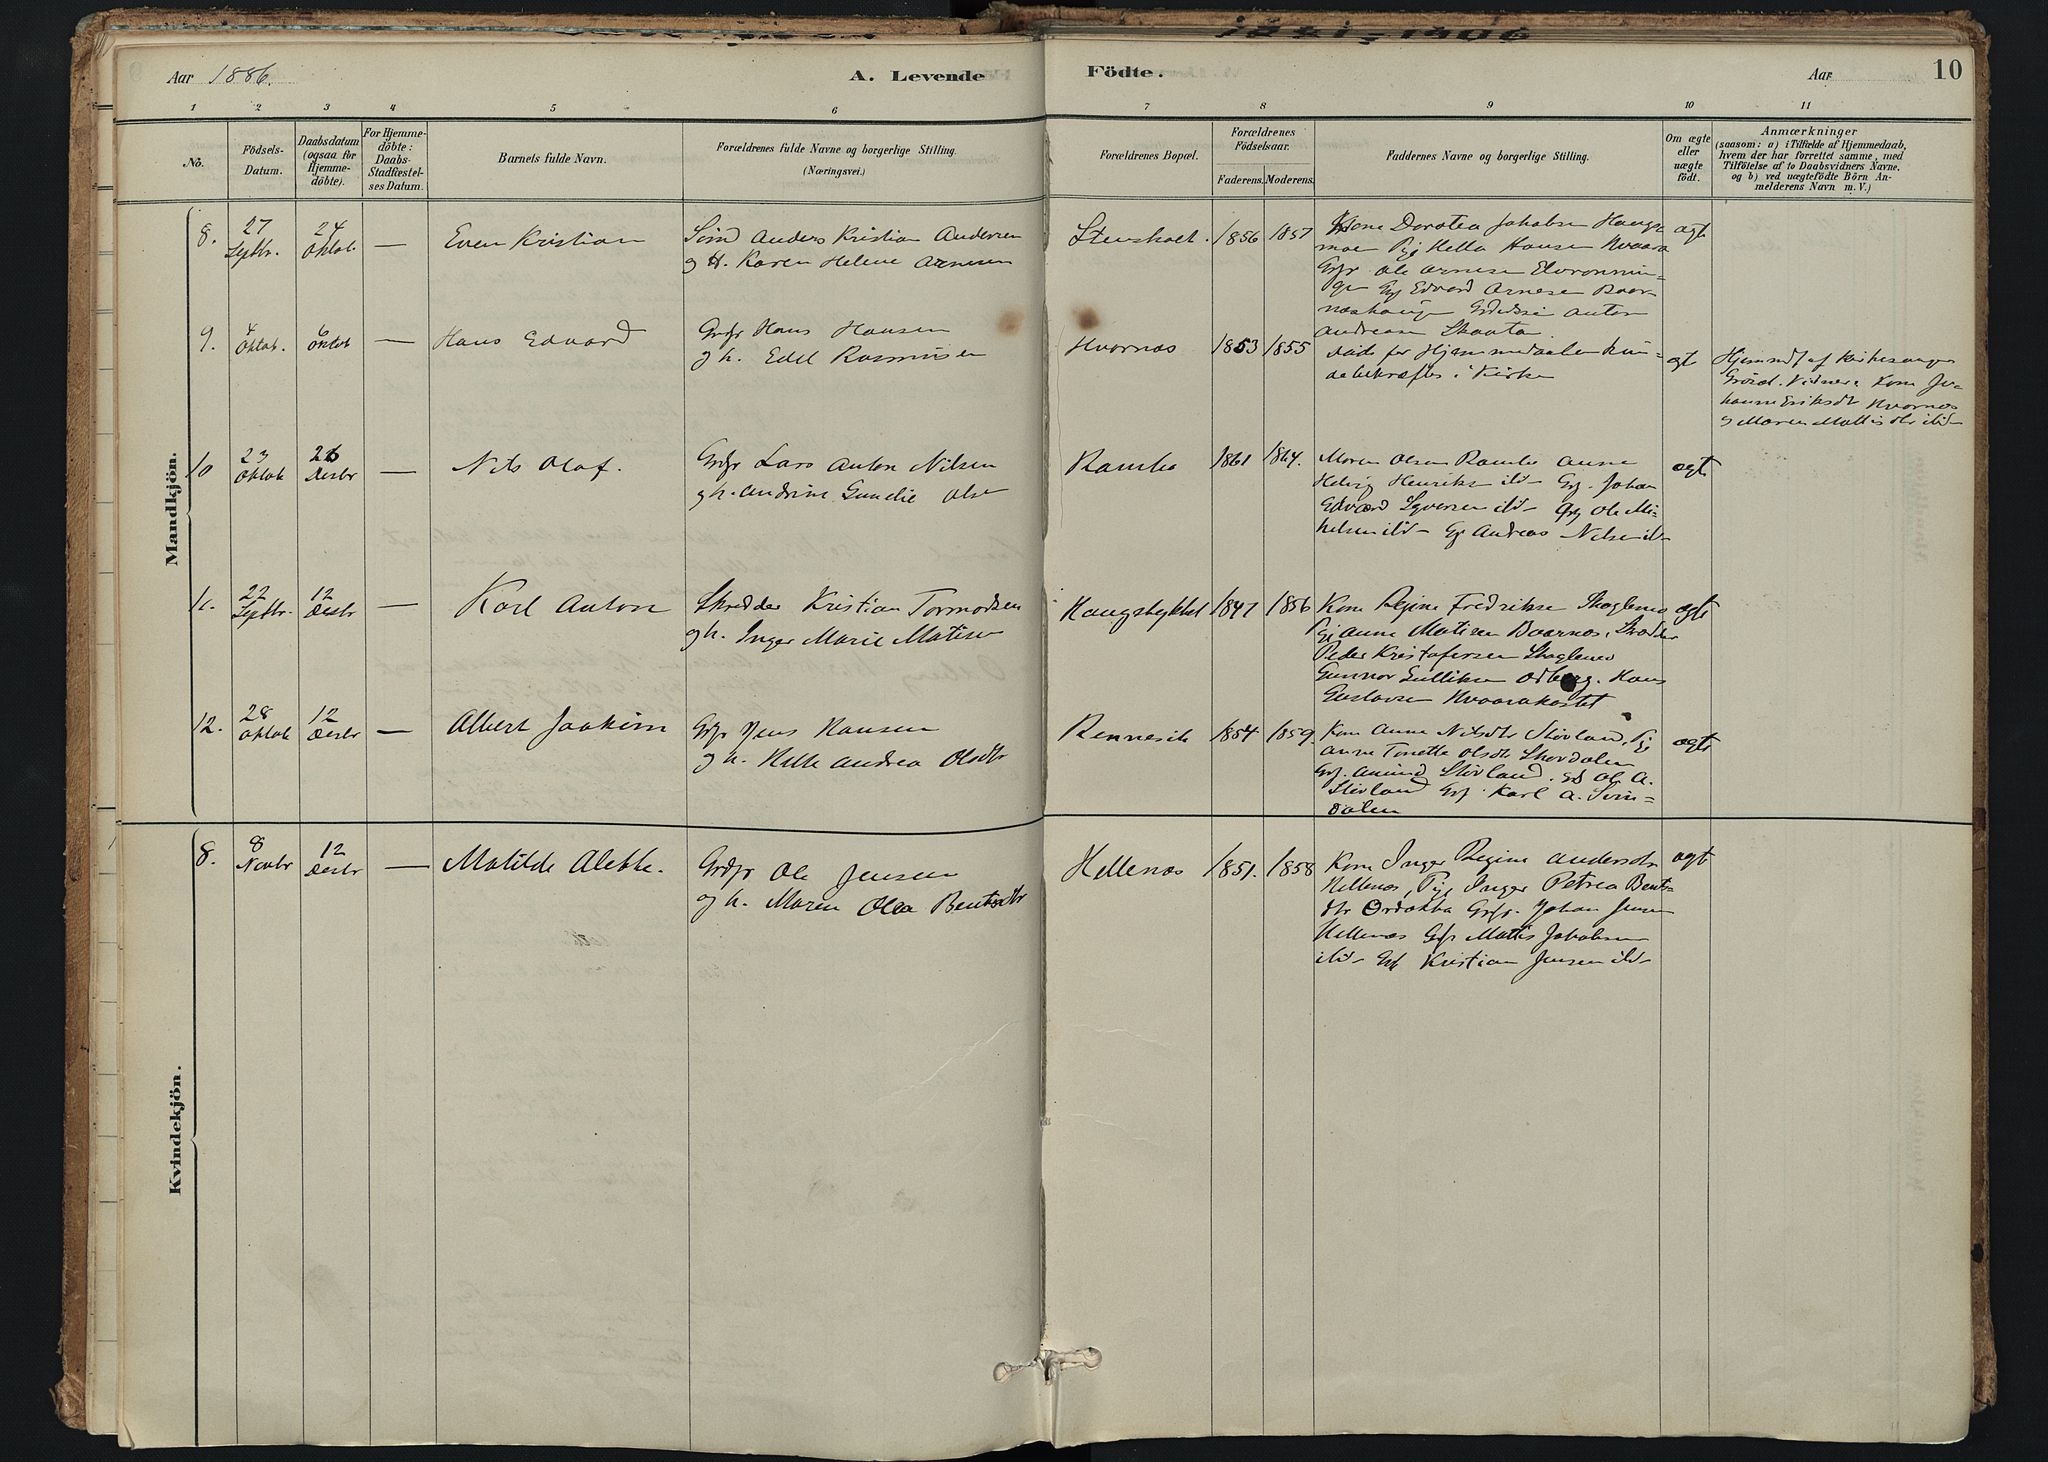 1881-1906
Aar 1886.
A. Levende Födte.
Aar
10
1 2 3 4 5 6 7 8 9 10 11
No.
Födsels-
Datum.
Daabsdatum
(ogsaa for
Hjemme-
döbte).
For Hjemme-
döbte:
Daabs-
Stadfæstel-
ses Datum.
Barnets fulde Navn.
Forældrenes fulde Navne og borgerlige Stilling.
(Næringsvei.)
Forældrenes Bopæl.
Forældrenes
Födselsaar.
Faderens. Moderens.
Faddernes Navne og borgerlige Stilling.
Om ægte
eller
uægte
födt.
Anmærkninger
(saasom: a) i Tilfælde af Hjemmedaab,
hvem der har forrettet samme, med
Tilföielse af to Daabsvidners Navne,
og b) ved uægtefödte Börn An-
melderens Navn m. V.)
Mandkjön.
8.
27
Septbr.
24
Oktob.
—
Even Kristian
Smd Anders Kristian Andersen
og H. Karen Helene Arnesen
Stensholt.
1856
1857
Kone Dorotea Jakobsen Haugs-
moen Pig Hella Hansen Kvaara
Grfr Ole Arnesen
Edvard Arnesen
Anton
Andreasen Skaata
ægt
9.
4
Oktob.
6
Oktob
—
Hans Edvard
Grdfr Hans Hansen
og h. Edel Rasmusen
Hvarnes
1853
1855
for Hjemmedaaben kun-
de bekræftes i Kirke
ægt
Hjemmdf af Kirkesanger
Vidner: Kone Jo-
hanne Eriksdt Hvarnes
og Maren Mattisdtr ibid-
10
23
Oktob
26
Desbr
—
Nils Olaf.
Grdfr Lars Anton Nilsen
og h. Andrine Gundie Olse
Rambo
1861
1864.
Maren Olsen Rambo Anne
Helvig Henriksen ibd- Grf. Johan
Edvard Syversen ibd- Grf Ole Mi-
helsen ibd- Andreas Nilsen ibd-
ægt
11.
22
Septbr.
12
Desbr
—
Karl Anton
Skrædder Kristian Tormodsen
og h. Inger Marie Matisen
Haugstykket
1847
1856
Kone Regine Fredriksen Skoglenes
Pig Anne Matisen Baarnes, Skrædder
Peder Kristofersen Skoglenes
Gunnar Gulliksen Odberg. Hans
Gustavsen Kvaarakastet
ægte
12.
28
Oktob
12
Desbr
—
Albert Joakim
Grfr Jens Hansen
og h. Helle Andrea Olsdtr
Rennesik
1854
1859.
Kone Anne Nilsdtr Stövland, Pig
Anne Tonette Olsdtr Skovdalen
Grf. Amund Stövland. Ole A.
Stövland Grf Karl A. Svin-
dalen
ægte
Kvindekjön.
8.
8
Novbr
12
Desbr
—
Matilde Alette.
Grdfr Ole Jensen
og h. Maren Olea Bentsdtr
Hellenes
1851.
1858
Kone Inger Regine Andersdtr
Hellenes, Pige Inger Petrea Bents-
dtr Grfr. Johan Jensen
Hellenes Grfr Mattis Jakobsen
ibd- Grf Kristian Jensen ibd-
ægt